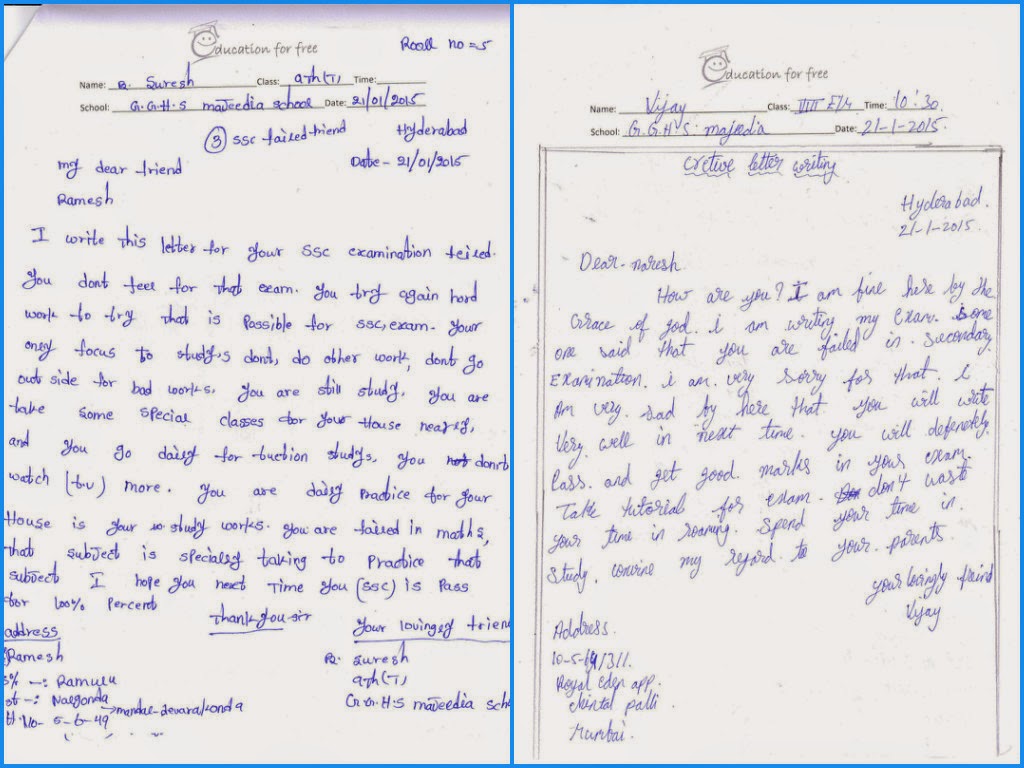 Education for free
Roall no = 5
Name: B. Suresh Class: 9th(T) Time:
School: G.G.H.S majeedia school Date: 21/01/2015
③ SSC failed friend
Hyderabad
Date - 21/01/2015
my dear friend
Ramesh
I write this letter for your SSC examination feiled.
You dont feel for that exam. You try again hard
work to try that is Possible for ssc,exam. Your
only focus to study,s dont, do other work, dont go
out side for bad works. You are still study. You are
take some special classes for your House nearly,
and you go daily for tuction studys, you dont
watch (tv) more. You are daily Practice for your
House is your study works. You are failed in maths,
that subject is specialy taking to Practice that
subject I hope you next Time You (SSC) is Pass
for 100% Percent
Thank you sir
address
Your lovingly frien
Ramesh
B. Suresh
S% -: Ramulu
9th(T)
st -: Nalgonda
→ mandal - devarakonda
G.G.H.S majeedia sch
H.No- 5-6-49
Education for free
Name: Vijay Class: VIII E/M Time: 10:30.
School: G.G.H.S. majedia Date: 21-1-2015.
Cretive letter writing
Hyderabad.
21-1-2015.
Dear. naresh.
How are you? I am fine here by the
Grace of god. i am writing my exam. Some
one said that you are failed in. Secondary
Examination. i am very sorry for that. i
Am very. sad by here that you will write
Very well in next time. you will defenetely
Pass. and get good. marks in your exam.
Take tutorial for exam. don't waste
your time in roaming. Spend your time in.
Study. convine my regard. to your. parents.
your lovingly freind
Vijay
Address.
Royal eden app.
Chintal palli.
Mumbai.